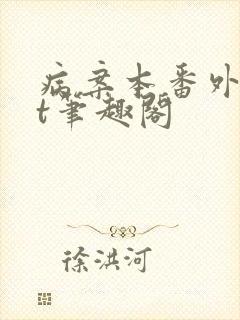 病案本番外
t笔趣阁
徐洪河